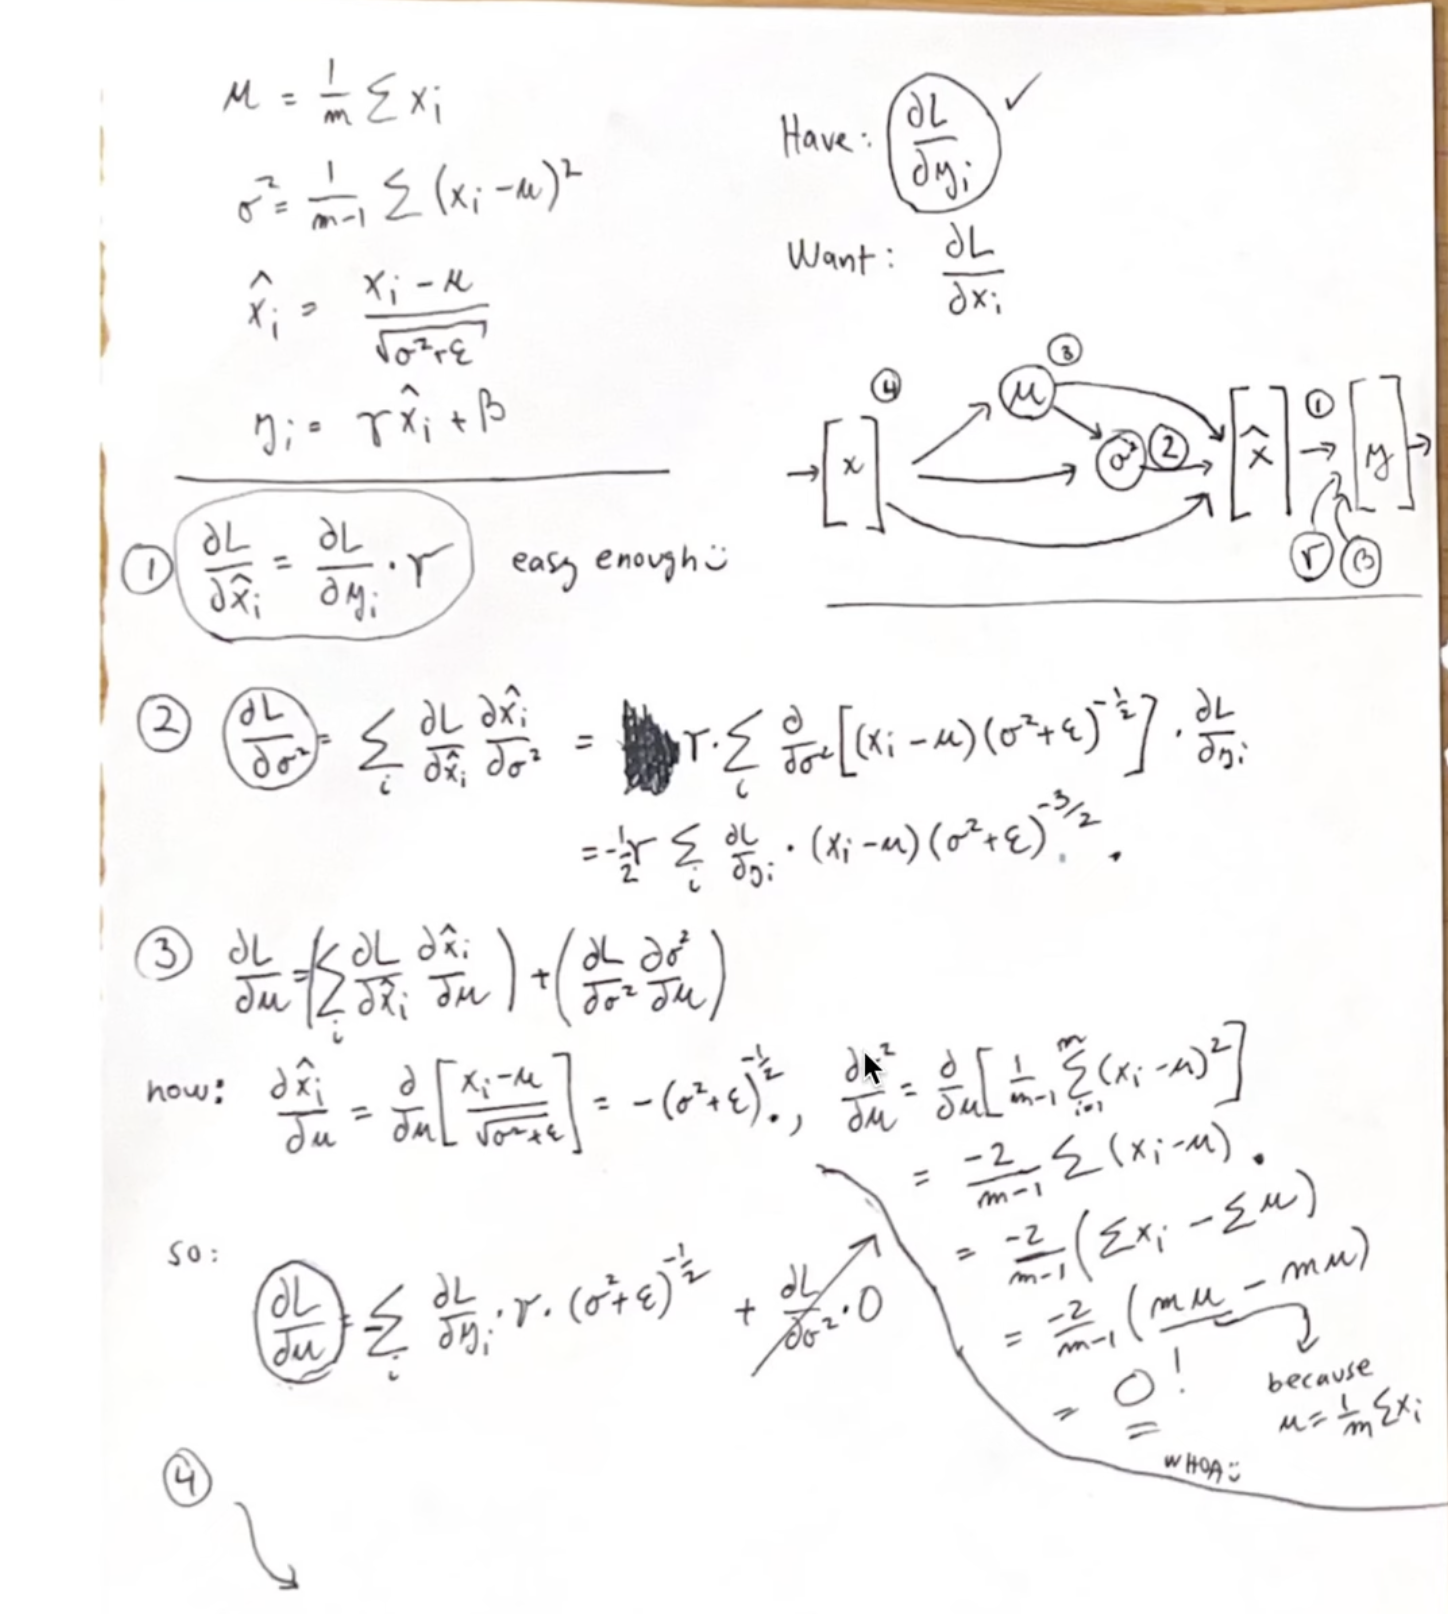 μ = 1/m Σ xᵢ
σ² = 1/(m-1) Σ (xᵢ - μ)²
x̂ᵢ = (xᵢ - μ)/√(σ²+ε)
yᵢ = γx̂ᵢ + β
Have: ∂L/∂yᵢ ✓
Want: ∂L/∂xᵢ
④ ③
→ [x] μ σ² ② [x̂] ① → [y] →
γ β
① ∂L/∂x̂ᵢ = ∂L/∂yᵢ · γ easy enough ☺
② ∂L/∂σ² = Σᵢ ∂L/∂x̂ᵢ ∂x̂ᵢ/∂σ² = γ · Σᵢ ∂/∂σ² [(xᵢ - μ)(σ²+ε)^(-1/2)] · ∂L/∂yᵢ
= -1/2 γ Σᵢ ∂L/∂yᵢ · (xᵢ - μ)(σ²+ε)^(-3/2).
③ ∂L/∂μ = (Σᵢ ∂L/∂x̂ᵢ ∂x̂ᵢ/∂μ) + (∂L/∂σ² ∂σ²/∂μ)
now: ∂x̂ᵢ/∂μ = ∂/∂μ [(xᵢ - μ)/√(σ²+ε)] = -(σ²+ε)^(-1/2)., ∂σ²/∂μ = ∂/∂μ [1/(m-1) Σᵢ₌₁ᵐ (xᵢ - μ)²]
= -2/(m-1) Σ (xᵢ - μ).
= -2/(m-1) (Σxᵢ - Σμ)
= -2/(m-1) (mμ - mμ)
= 0!
because
μ = 1/m Σxᵢ
WHOA ☺
so:
∂L/∂μ = -Σᵢ ∂L/∂yᵢ · γ · (σ²+ε)^(-1/2) + ∂L/∂σ² · 0
④